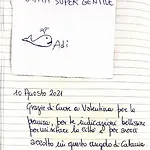 SUPER GENTILE
Adi
10 Agosto 2021
Grazie di cuore a Valentina per le
premure, per le indicazioni bellissime
per visitare la città e per averci
accolto in questo angolo di Catania